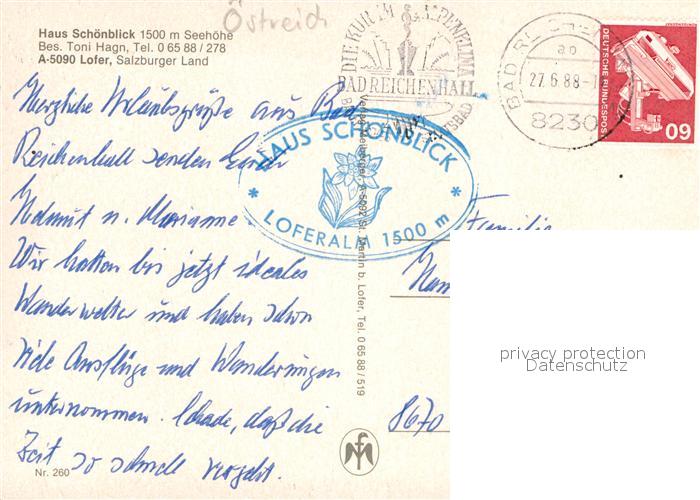 Östreich
Haus Schönblick 1500 m Seehöhe
Bes. Toni Hagn, Tel. 0 65 88 / 278
A-5090 Lofer, Salzburger Land
DIE KUR IM ALPENKLIMA
BAD REICHENHALL
BAD REICHENHALL
27.6.88
8230
DEUTSCHE BUNDESPOST
60
HAUS SCHÖNBLICK
LOFERALM 1500 m
Herzliche Urlaubsgrüße aus Bad
Reichenhall senden Euch
Helmut u. Marianne.
Wir hatten bis jetzt ideales
Wanderwetter und haben schon
viele Ausflüge und Wanderungen
unternommen. Schade, daß die
Zeit so schnell vergeht.
Familie
8670
St. Martin b. Lofer, Tel. 0 65 88 / 519
Nr. 260
privacy protection
Datenschutz